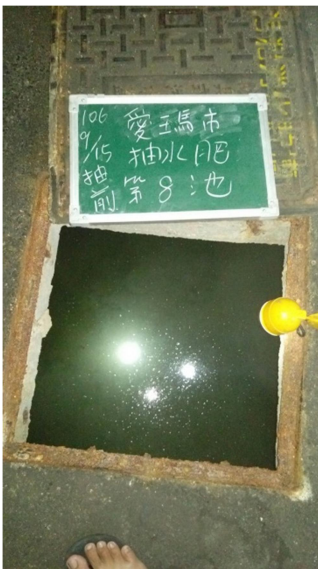 106
9/15
抽前
愛瑪市
抽水肥
第8池